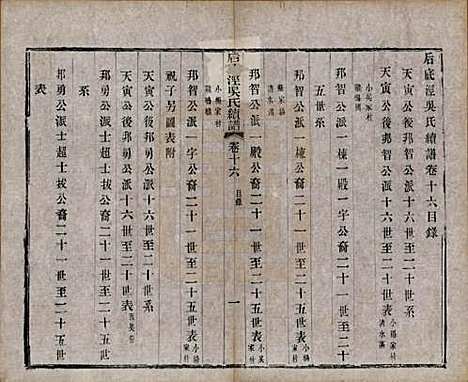 后底涇吳氏續譜卷十六目錄
天寅公後邦智公派十六世至二十世系
天寅公後邦智公派十六世至二十世表
邦智公派一棟一殿一字公裔二十一世至二十
五世系
邦智公派一棟公裔二十一世至二十五世表
邦智公派一殿公裔二十一世至二十五世表
涇吳氏續譜
卷十六
目錄
一
邦智公派一字公裔二十一世至二十五世表
祝子另圖表附
天寅公後邦勇公派十六世至二十世系
天寅公後邦勇公派十六世至二十世表
邦勇公派士超士拔公裔二十一世至二十五世
系
邦勇公派士超士拔公裔二十一世至二十五世
表